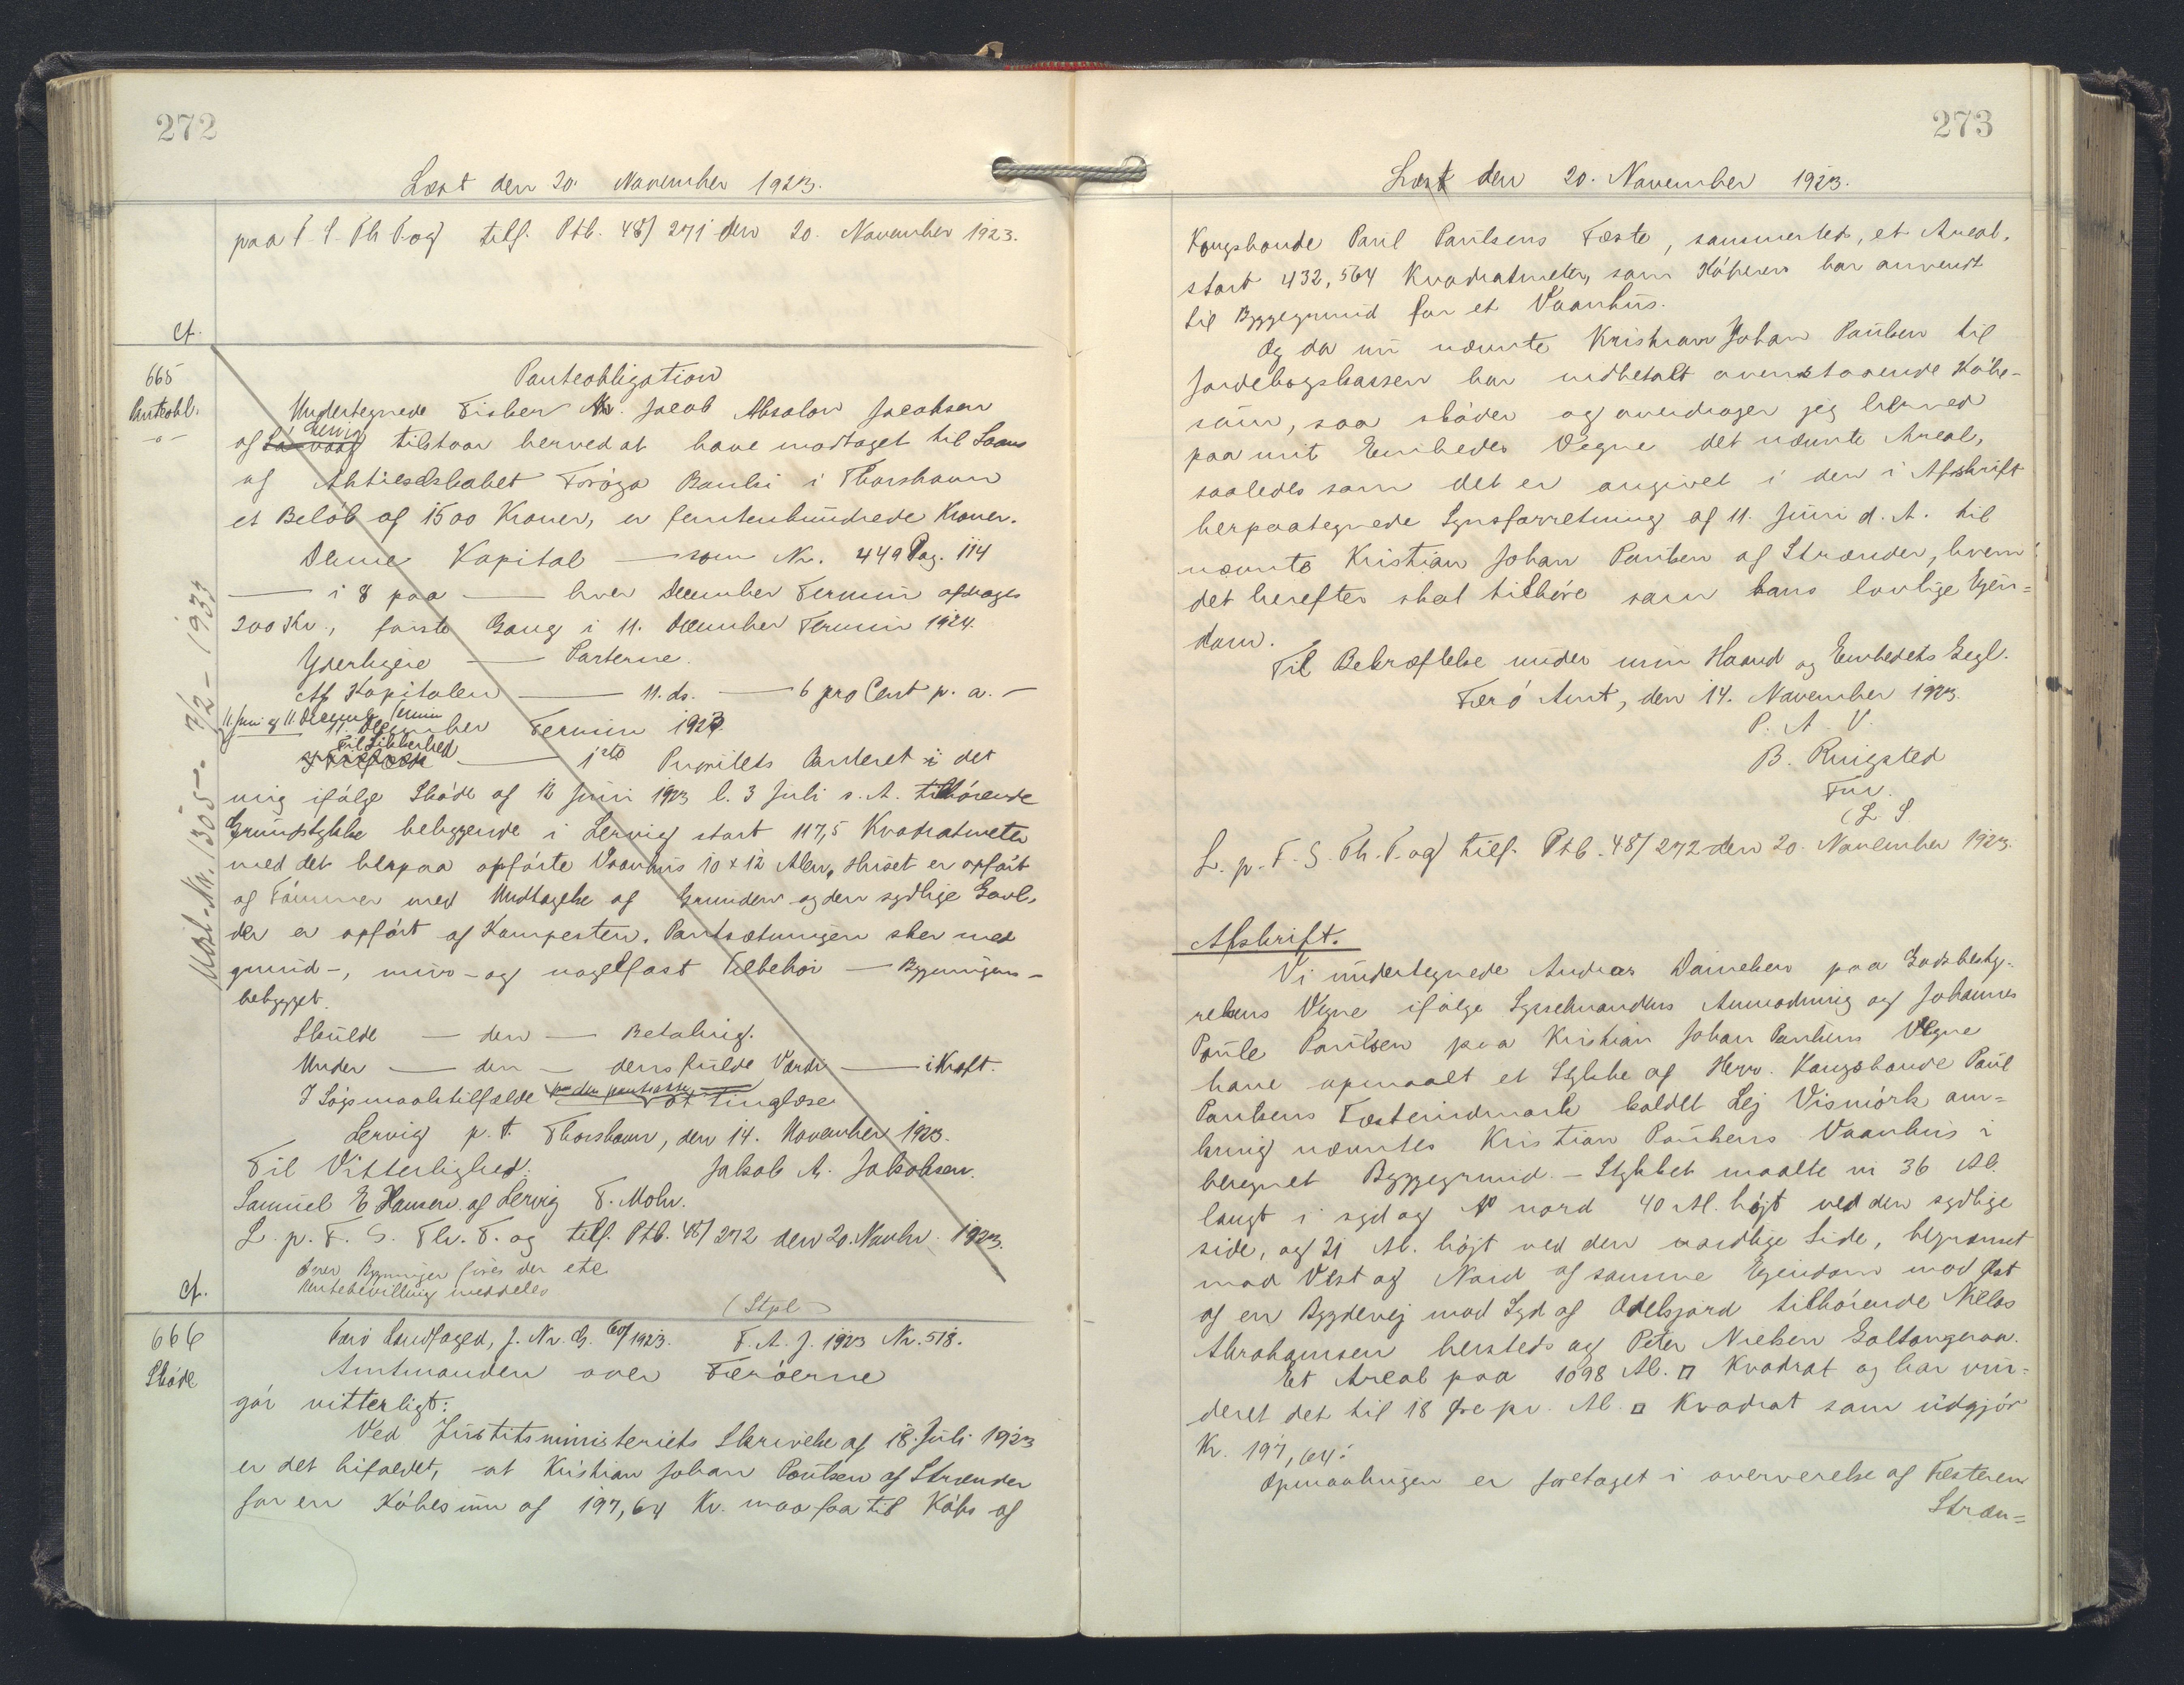 272
Læst den 20. November 1923.
paa F. S. Th. T. og tilf. Ptb. 48/271 den 20. November 1923.
Cf.
665
Panteobl.
Panteobligation
Undertegnede Fisker Jacob Absalon Jacobsen
af Lervig tilstaar herved at have modtaget til Laans
af Aktieselskabet Føroya Banki i Thorshavn
et Beløb af 1500 Kroner, er femtenhundrede Kroner.
Denne Kapital — som Nr. 449 Pag. 114
— i 8 paa — hver December Termin afdrages
200 Kr., første Gang i 11. December Termin 1924.
Yderligere — Parterne.
Af Kapitalen — 11. ds. — 6 pro Cent p. a. —
11 Juni og 11 December Termin
11. December Termin 1923
Til Sikkerhed — 1ste Prioritets Panteret i det
mig ifølge Skøde af 12 Juni 1923 l. 3 Juli s. A. tilhørende
Grundstykke beliggende i Lervig stort 117,5 Kvadratmeter
med det herpaa opførte Vaanhus 10 x 12 Alen, Huset er opført
af Tømmer med Undtagelse af Grunden og den sydlige Gavl,
der er opført af Kampesten. Pantsætningen sker med
grund-, mur- og nagelfast Tilbehør — Bygningens —
bebygget.
Skulde — den — Betaling.
Under — den — dens fulde Værdi — i Kraft.
I Søgsmaalstilfælde — tinglæse
Lervig p. t. Thorshavn, den 14. November 1923.
Til Vitterlighed: Jakob A. Jakobsen.
Samuel E Hansen af Lervig T. Mohr.
L. p. F. S. Th. T. og tilf. Ptb. 48/272 den 20. Novbr. 1923.
Over Bygninger føres der etc
Rentebevilling meddeles
Udsl. Nr. 1305 - 7/2 - 1933
Cf.
(Stpl)
666
Skøde
Færø Landfoged, J. Nr. G. 60/1923. F. A. J. 1923 Nr. 518.
Amtmanden over Færøerne
gør vitterligt:
Ved Justitsministeriets Skrivelse af 18. Juli 1923
er det bifaldet, at Kristian Johan Poulsen af Strænder
for en Købesum af 197,64 Kr. maa faa til Købs af
273
Læst den 20. November 1923.
Kongsbonde Paul Paulsens Fæste, sammested, et Areal,
stort 432,564 Kvadratmeter, som Køberen har anvendt
til Byggegrund for et Vaanhus.
Og da nu nævnte Kristian Johan Paulsen til
Jordebogskassen har indbetalt ovenstaaende Købe-
sum, saa skøder og overdrager jeg herved
paa mit Embedes Vegne det nævnte Areal,
saaledes som det er angivet i den i Afskrift
herpaategnede Synsforretning af 11. Juni d. A. til
nævnte Kristian Johan Paulsen af Strænder, hvem
det herefter skal tilhøre som hans lovlige Ejen=
dom.
Til Bekræftelse under min Haand og Embedets Segl.
Færø Amt, den 14. November 1923.
P. A. V.
B. Ringsted
Fm.
(L. S.
L. p. F. S. Th. T. og tilf. Ptb. 48/272 den 20. November 1923.
Afskrift.
Vi undertegnede Andras Danielsen paa Godsbesty-
relsens Vegne ifølge Sysselmandens Anmodning og Johannes
Poule Poulsen paa Kristian Johan Paulsens Vegne
have opmaalt et Stykke af Herr. Kongsbonde Paul
Paulsens Fæsteindmark kaldet Lej Vismørk om=
kring nævntes Kristian Paulsens Vaanhus i
beregnet Byggegrund. — Stykket maalte vi 36 Al.
langt i syd og nord 40 Al. højt ved den sydlige
side, og 21 Al. højt ved den nordlige Side, begrænset
mod Vest og Nord af samme Ejendom mod Øst
af en Bygdevej mod Syd af Odelsjord tilhørende Niclas
Abrahamsen hersteds og Peter Nielsen Saltangeraa.
Et Areal paa 1098 Al. □ Kvadrat og har vur=
deret det til 18 Øre pr. Al. □ Kvadrat som udgjør
Kr. 197,64.
Opmaalingen er foretaget i overværelse af Fæsteren
Stræn=